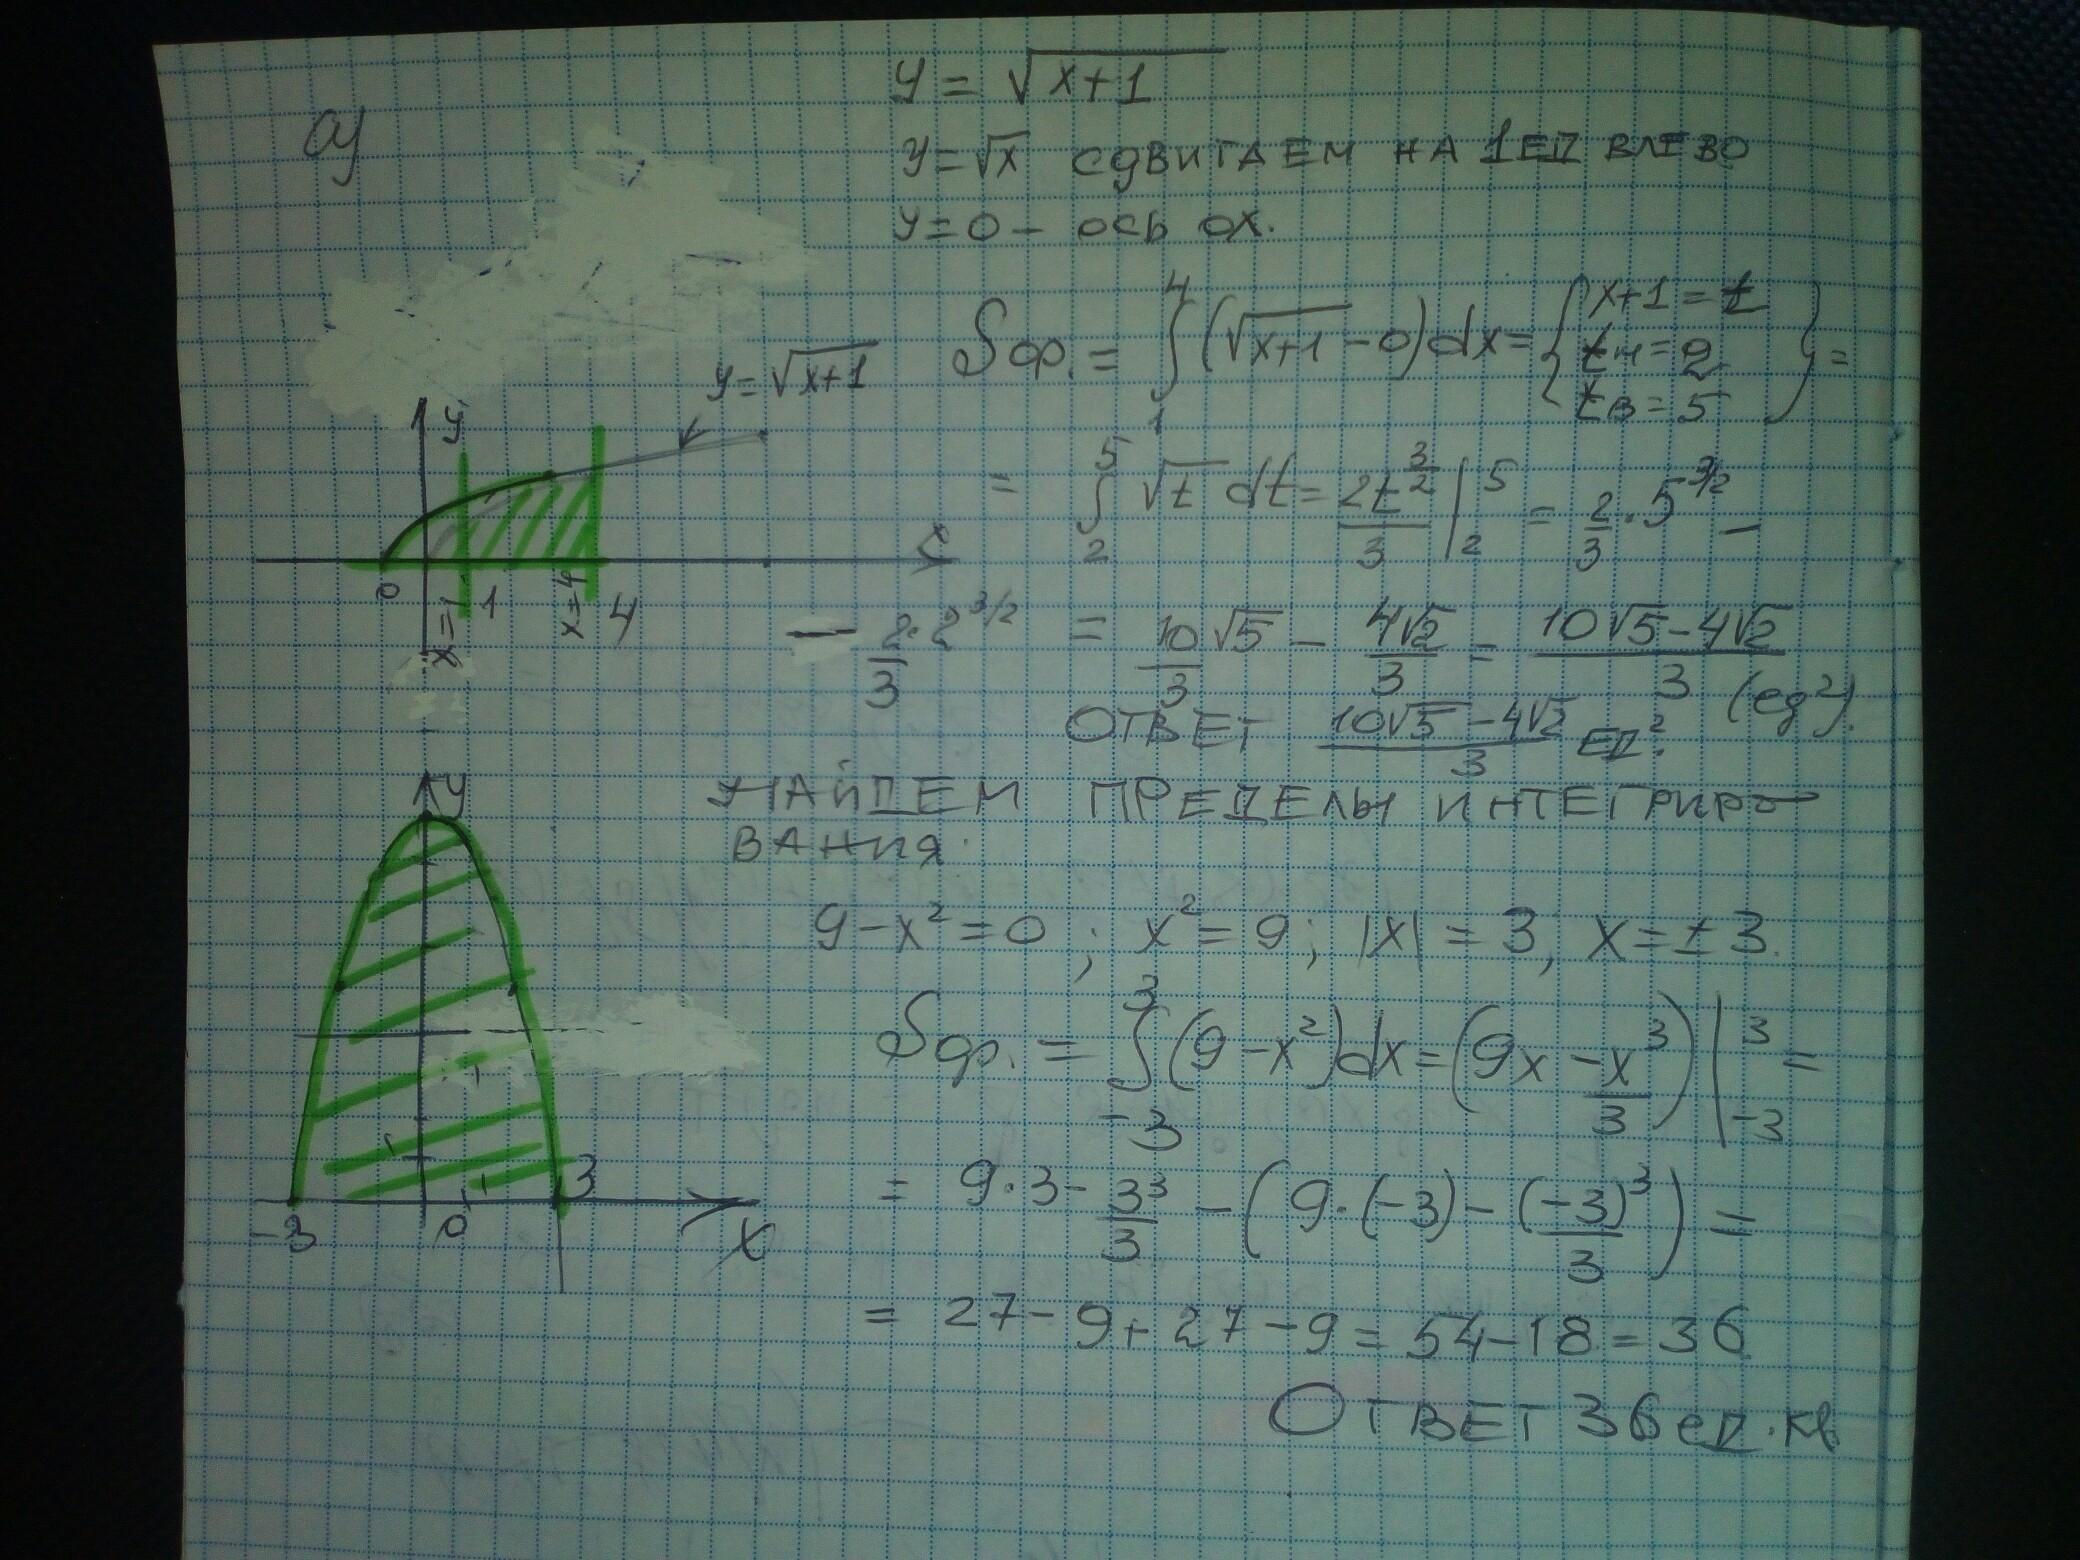 а)
y = √(x+1)
y = √x сдвигаем на 1ед влево
y=0 – ось ox.
Sф. = ∫₁⁴ (√(x+1) - 0) dx = { x+1 = t
tн = 2
tв = 5 } =
y = √(x+1)
y
x
0
x=1
1
x=4
4
= ∫₂⁵ √t dt = 2t^(3/2)/3 |₂⁵ = 2/3 · 5^(3/2) –
– 2·2^(3/2)/3 = 10/3 √5 – 4√2/3 = (10√5 – 4√2)/3 (ед²).
Ответ (10√5 – 4√2)/3 ед².
Найдем пределы интегриро
вания.
y
9 – x² = 0 ; x² = 9 ; |x| = 3, x = ± 3.
Sф. = ∫₋₃³ (9 – x²) dx = (9x – x³/3) |₋₃³ =
= 9·3 – 3³/3 – (9·(–3) – (–3)³/3) =
-3
0
3
x
= 27 – 9 + 27 – 9 = 54 – 18 = 36
Ответ 36 ед. кв